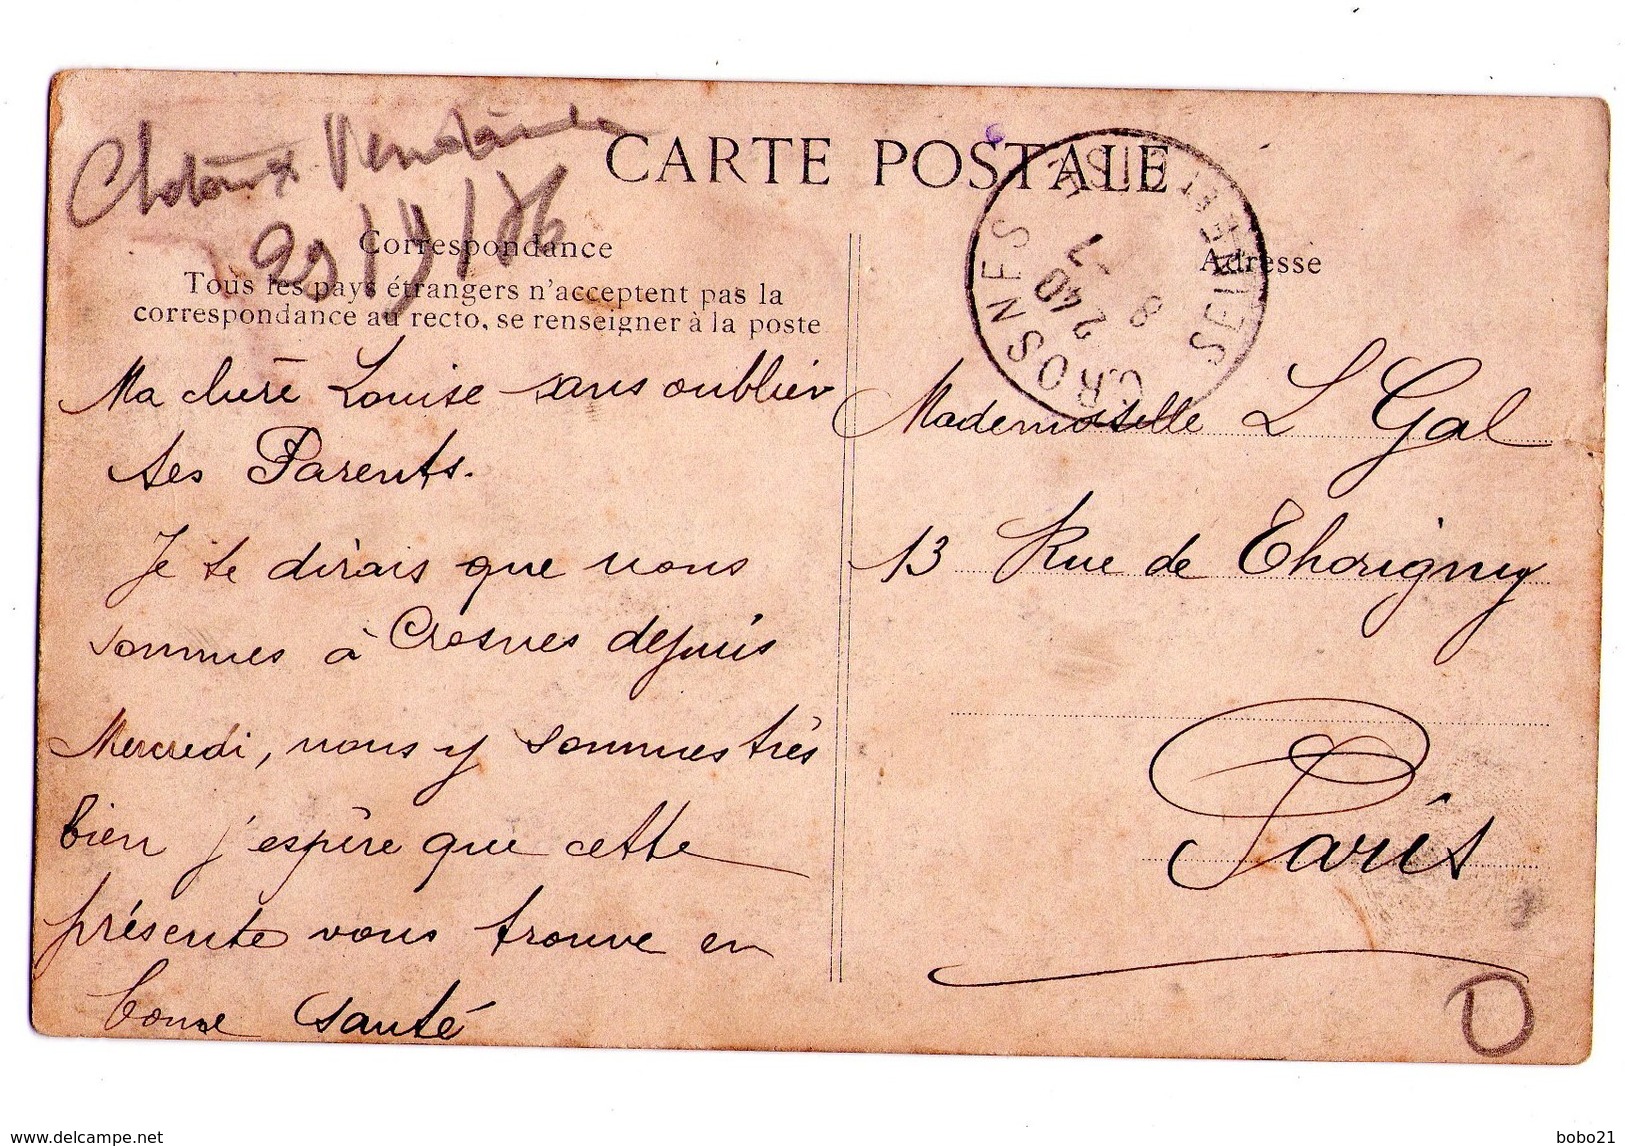 CARTE POSTALE
29
Correspondance
Tous les pays étrangers n'acceptent pas la
correspondance au recto, se renseigner à la poste
Ma chère Louise sans oublier
ses Parents.
Je te dirais que nous
sommes à Crosnes depuis
Mercredi, nous y sommes très
bien j'espère que cette
présente vous trouve en
bonne santé
CROSNES
SEINE ET OISE
2 40
8 - 7
Adresse
Mademoiselle L Gal
13 Rue de Thorigny
Paris
D
www.delcampe.net
bobo21